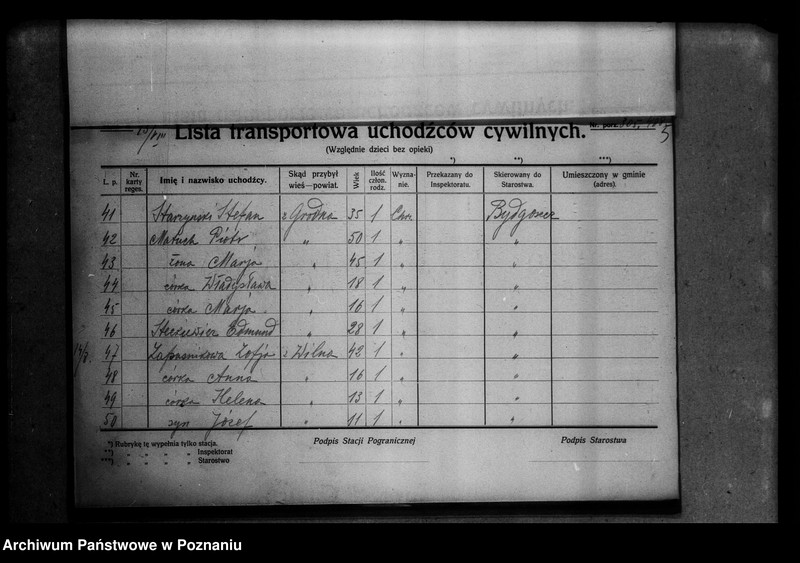 Lista transportowa uchodźców cywilnych.
(Względnie dzieci bez opieki)
*) **) ***)
L. p. Nr. karty reges. Imię i nazwisko uchodźcy. Skąd przybył wieś—powiat. Wiek Ilość człon. rodz. Wyznanie. Przekazany do Inspektoratu. Skierowany do Starostwa. Umieszczony w gminie (adres).
41 Starzyński Stefan z Grodna 35 1 Chrz. Bydgoszcz
42 Matuch Piotr " 50 1 " "
43 żona Marja " 45 1 " "
44 córka Władysława " 18 1 " "
45 córka Marja " 16 1 " "
46 Edmund " 28 1 " "
47 Zofja z Wilna 42 1 " "
48 córka Anna " 16 1 " "
49 córka Helena " 13 1 " "
50 syn Józef " 11 1 " "
*) Rubrykę tę wypełnia tylko stacja.
**) " " " " Inspektorat
***) " " " " Starostwo
Podpis Stacji Pogranicznej
Podpis Starostwa
Archiwum Państwowe w Poznaniu